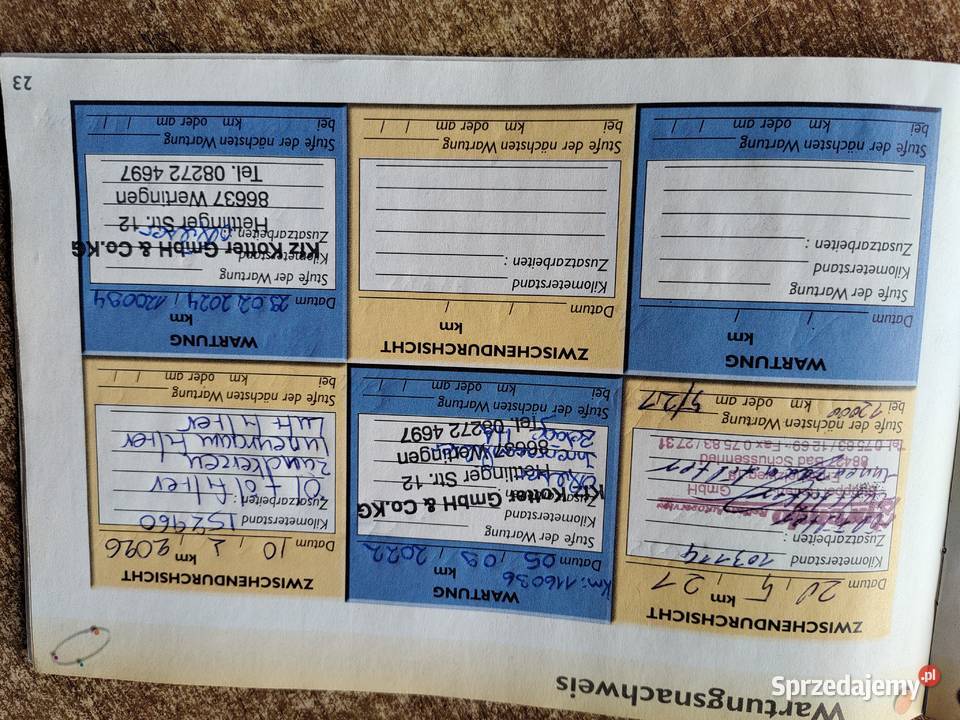 Wartungsnachweis
ZWISCHENDURCHSICHT
km
Datum 20, 5, 21
Kilometerstand 103114
Zusatzarbeiten :
GmbH
88427 Bad Schussenried
Tel. 0 75 83 / 12 69 - Fax 0 75 83 / 27 31
Stufe der nächsten Wartung
bei km oder am 5/21
WARTUNG
km
km: 116036
Datum 05, 09, 2022
Stufe der Wartung
Kfz Kötter GmbH & Co.KG
Hettlinger Str. 12
86637 Wertingen
Tel. 08272 4697
Stufe der nächsten Wartung
bei km oder am / /
ZWISCHENDURCHSICHT
km
Datum 10, 2, 2026
Kilometerstand 152460
Zusatzarbeiten :
Öl + Ölfilter
Zündkerzen
Innenraum Filter
Luft Filter
Stufe der nächsten Wartung
bei km oder am / /
WARTUNG
km
Datum / /
Stufe der Wartung
Kilometerstand
Zusatzarbeiten :
Stufe der nächsten Wartung
bei km oder am / /
ZWISCHENDURCHSICHT
km
Datum / /
Kilometerstand
Zusatzarbeiten :
Stufe der nächsten Wartung
bei km oder am / /
WARTUNG
km
Datum 23.02.2024, 120094
Stufe der Wartung
Kilometerstand
Kfz Kötter GmbH & Co.KG
Zusatzarbeiten :
Hettlinger Str. 12
86637 Wertingen
Tel. 08272 4697
Stufe der nächsten Wartung
bei km oder am / /
23
Sprzedajemy.pl